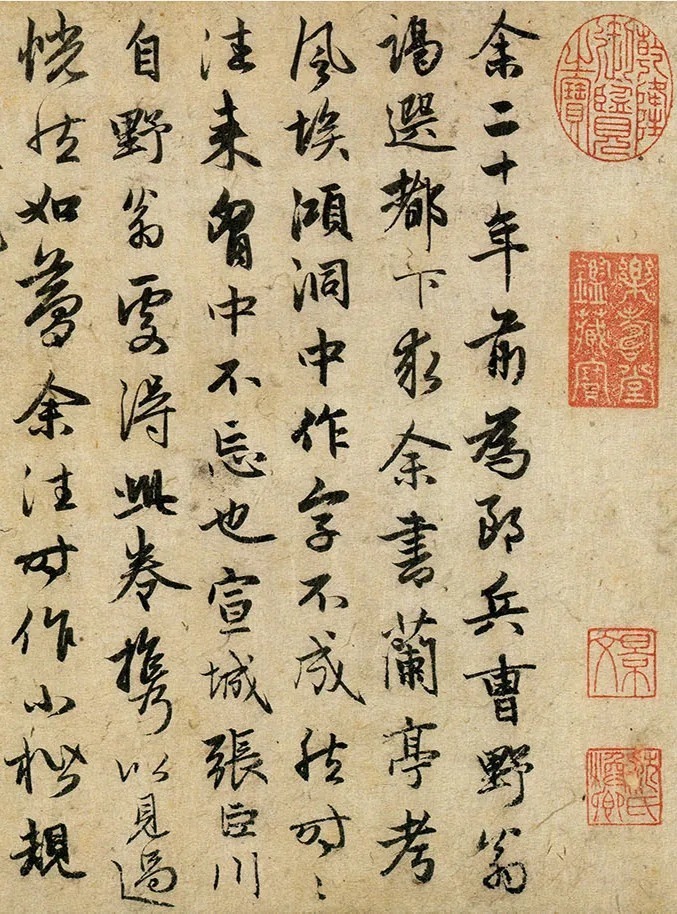 乾隆御覽之寶
樂壽堂鑑藏寶
余二十年前為郎兵曹野翁
謁選都下求余書蘭亭考
風埃澒洞中作字不成然時〻
往來胷中不忘也宣城張臣川
自野翁處得此卷攜以見過
恍然如夢余往時作小楷規